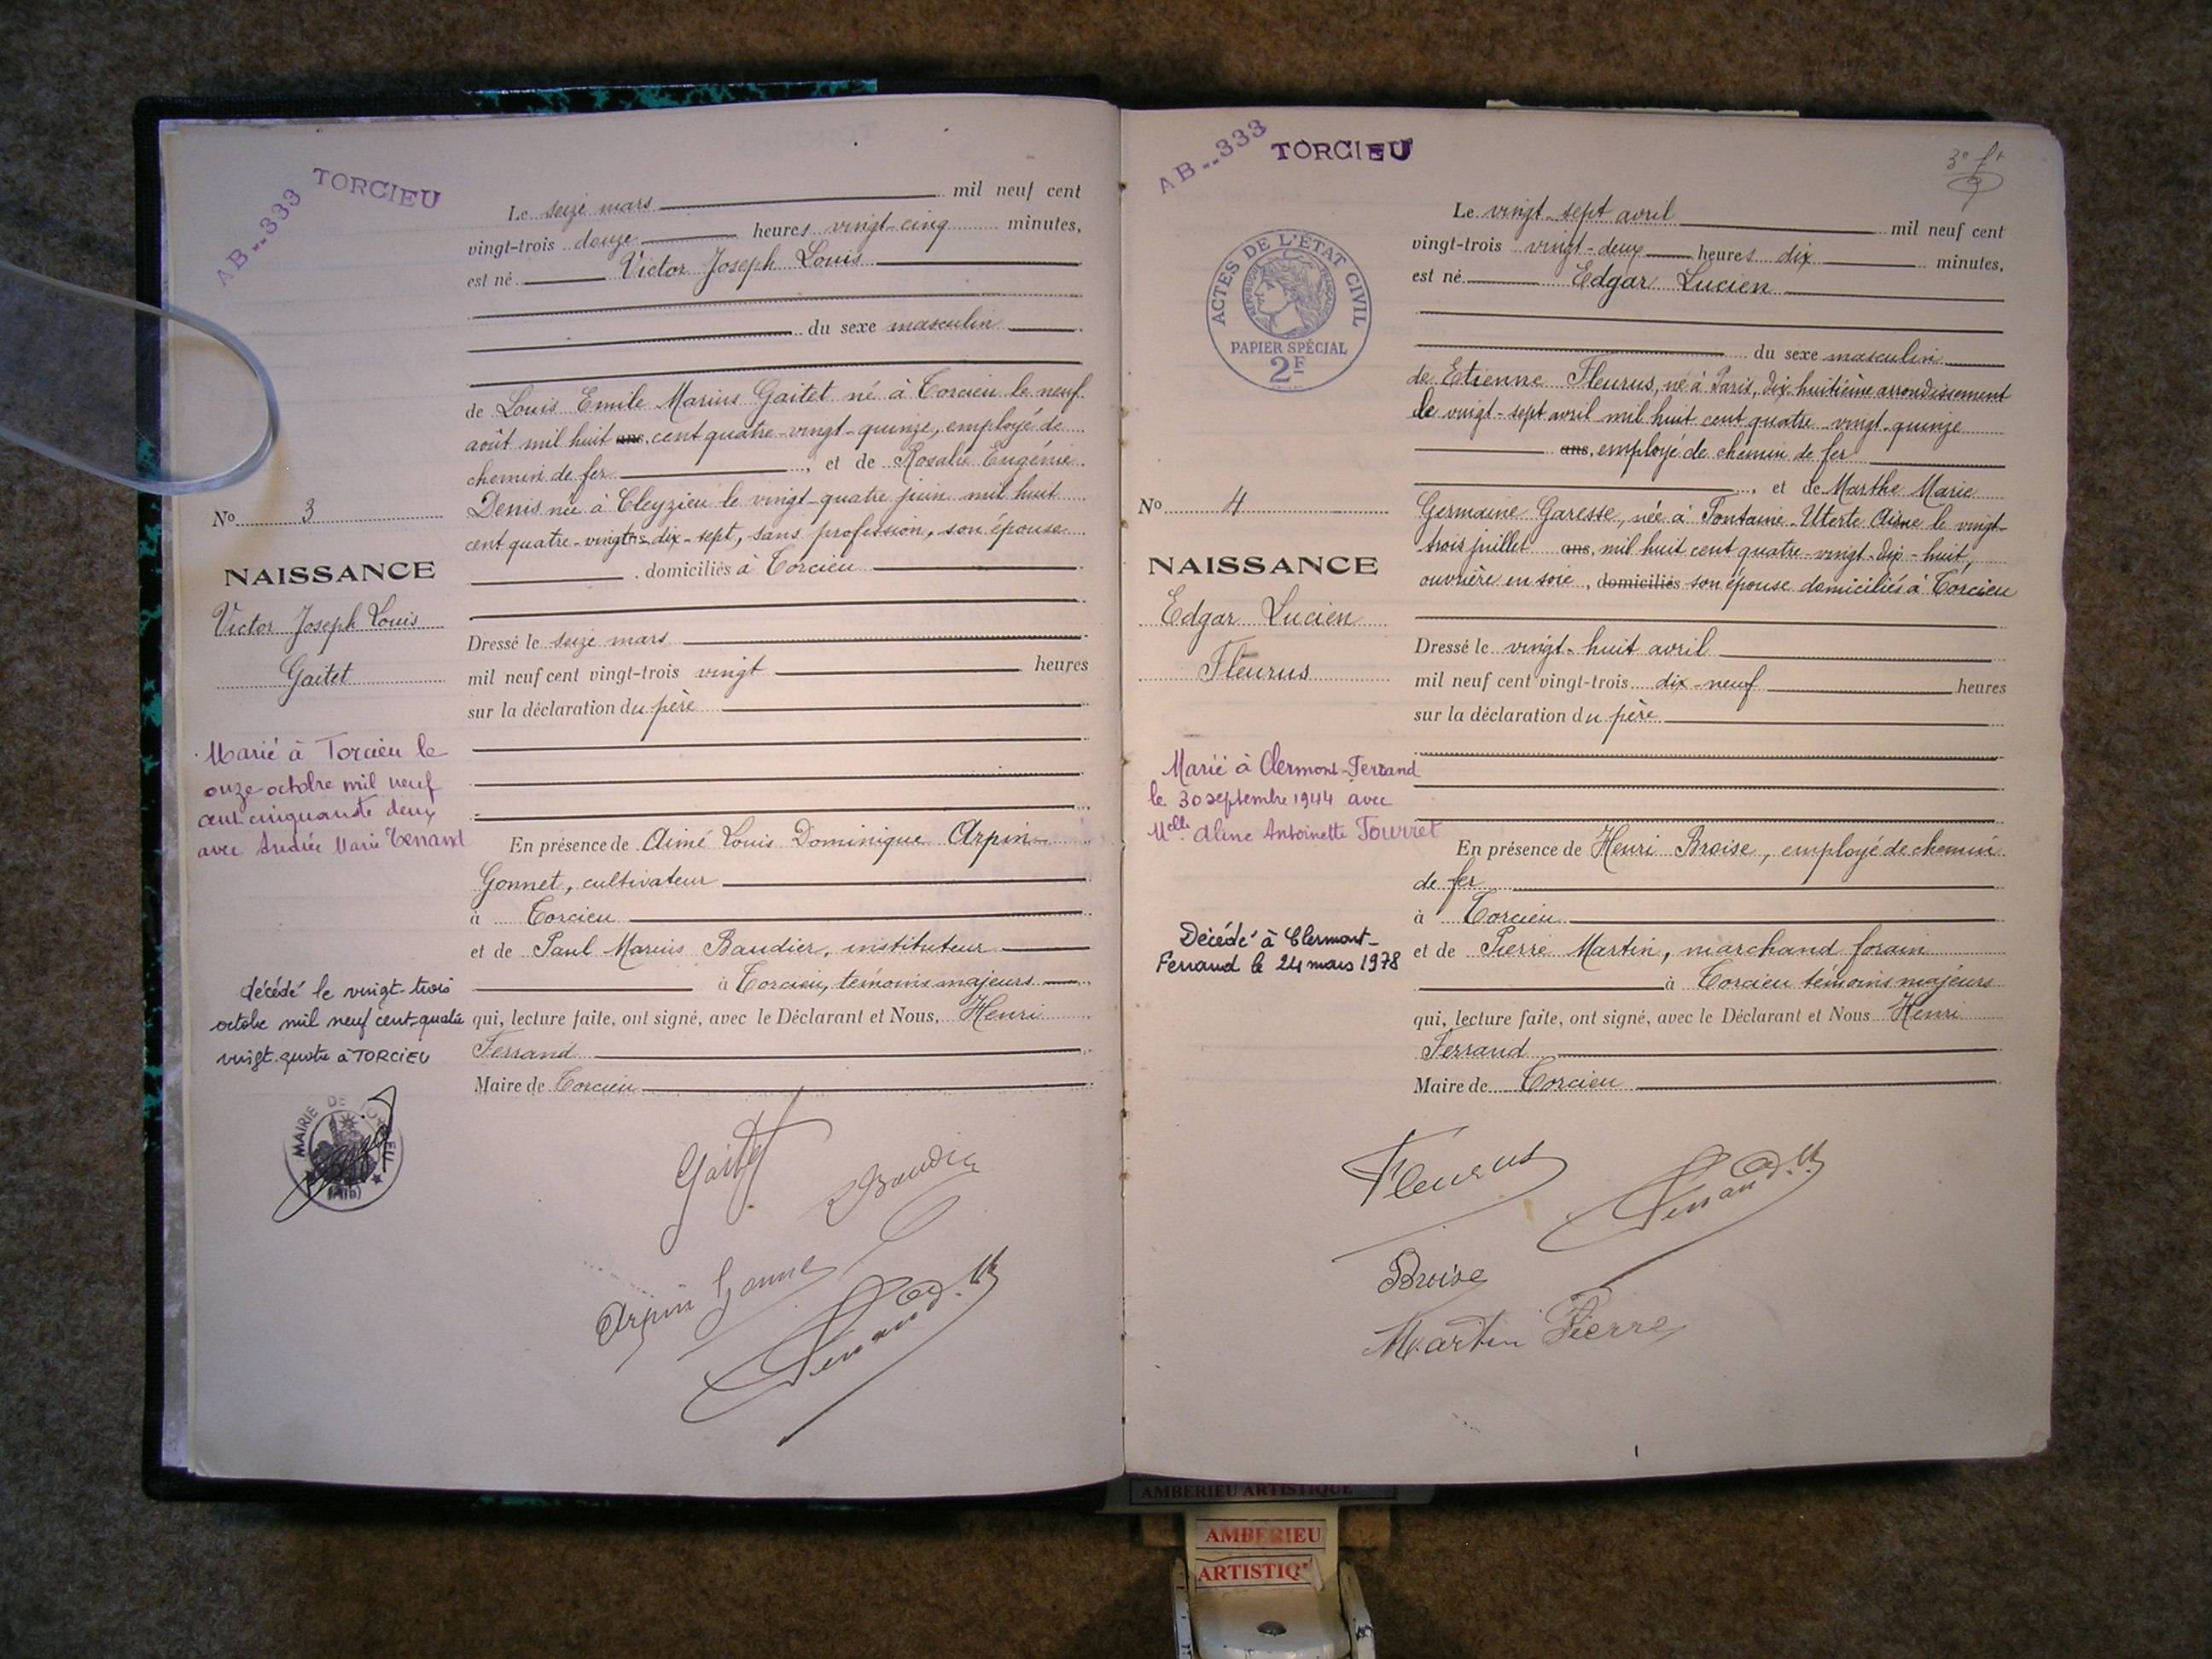 AB--333 TORCIEU
Le seize mars mil neuf cent
vingt-trois douze heures vingt-cinq minutes,
est né Victor Joseph Louis
du sexe masculin
de Louis Emile Marius Gaitet né à Torcieu le neuf
août mil huit ans, cent quatre-vingt-quinze, employé de
chemin de fer, et de Rosalie Eugénie
Denis née à Cleyzieu le vingt-quatre juin mil huit
cent quatre-vingt-dix-sept, sans profession, son épouse
domiciliés à Torcieu
Dressé le seize mars
mil neuf cent vingt-trois vingt heures
sur la déclaration du père
En présence de Aimé Louis Dominique Arpin-
Gonnet, cultivateur
à Torcieu
et de Paul Marius Baudier, instituteur
à Torcieu, témoins majeurs
qui, lecture faite, ont signé, avec le Déclarant et Nous, Henri
Ferrand
Maire de Torcieu
No 3
NAISSANCE
Victor Joseph Louis
Gaitet
Marié à Torcieu le
onze octobre mil neuf
cent cinquante deux
avec Andrée Marie Tenand
décédé le vingt-trois
octobre mil neuf cent-quatre
vingt quatre à TORCIEU
MAIRIE DE TORCIEU
(Ain)
Gaitet
Baudier
Arpin Gonnet
Ferrand
AB--333 TORCIEU
3e ft
ACTES DE L'ÉTAT CIVIL
RÉPUBLIQUE FRANÇAISE
PAPIER SPÉCIAL
2F
Le vingt-sept avril mil neuf cent
vingt-trois vingt-deux heures dix minutes,
est né Edgar Lucien
du sexe masculin
de Etienne Fleurus, né à Paris, dix-huitième arrondissement
le vingt-sept avril mil huit cent quatre-vingt-quinze
ans, employé de chemin de fer
, et de Marthe Marie
Germaine Garesse, née à Fontaine-Uterte Aisne le vingt-
trois juillet ans, mil huit cent quatre-vingt-dix-huit,
ouvrière en soie, domiciliés son épouse domiciliés à Torcieu
Dressé le vingt-huit avril
mil neuf cent vingt-trois dix-neuf heures
sur la déclaration du père
En présence de Henri Broise, employé de chemin
de fer
à Torcieu
et de Pierre Martin, marchand forain
à Torcieu témoins majeurs
qui, lecture faite, ont signé, avec le Déclarant et Nous Henri
Ferrand
Maire de Torcieu
No 4
NAISSANCE
Edgar Lucien
Fleurus
Marié à Clermont-Ferrand
le 30 septembre 1944 avec
Melle Aline Antoinette Tourret
Décédé à Clermont-
Ferrand le 24 mars 1978
Fleurus
Ferrand
Broise
Martin Pierre
AMBERIEU ARTISTIQUE
AMBERIEU
ARTISTIQ